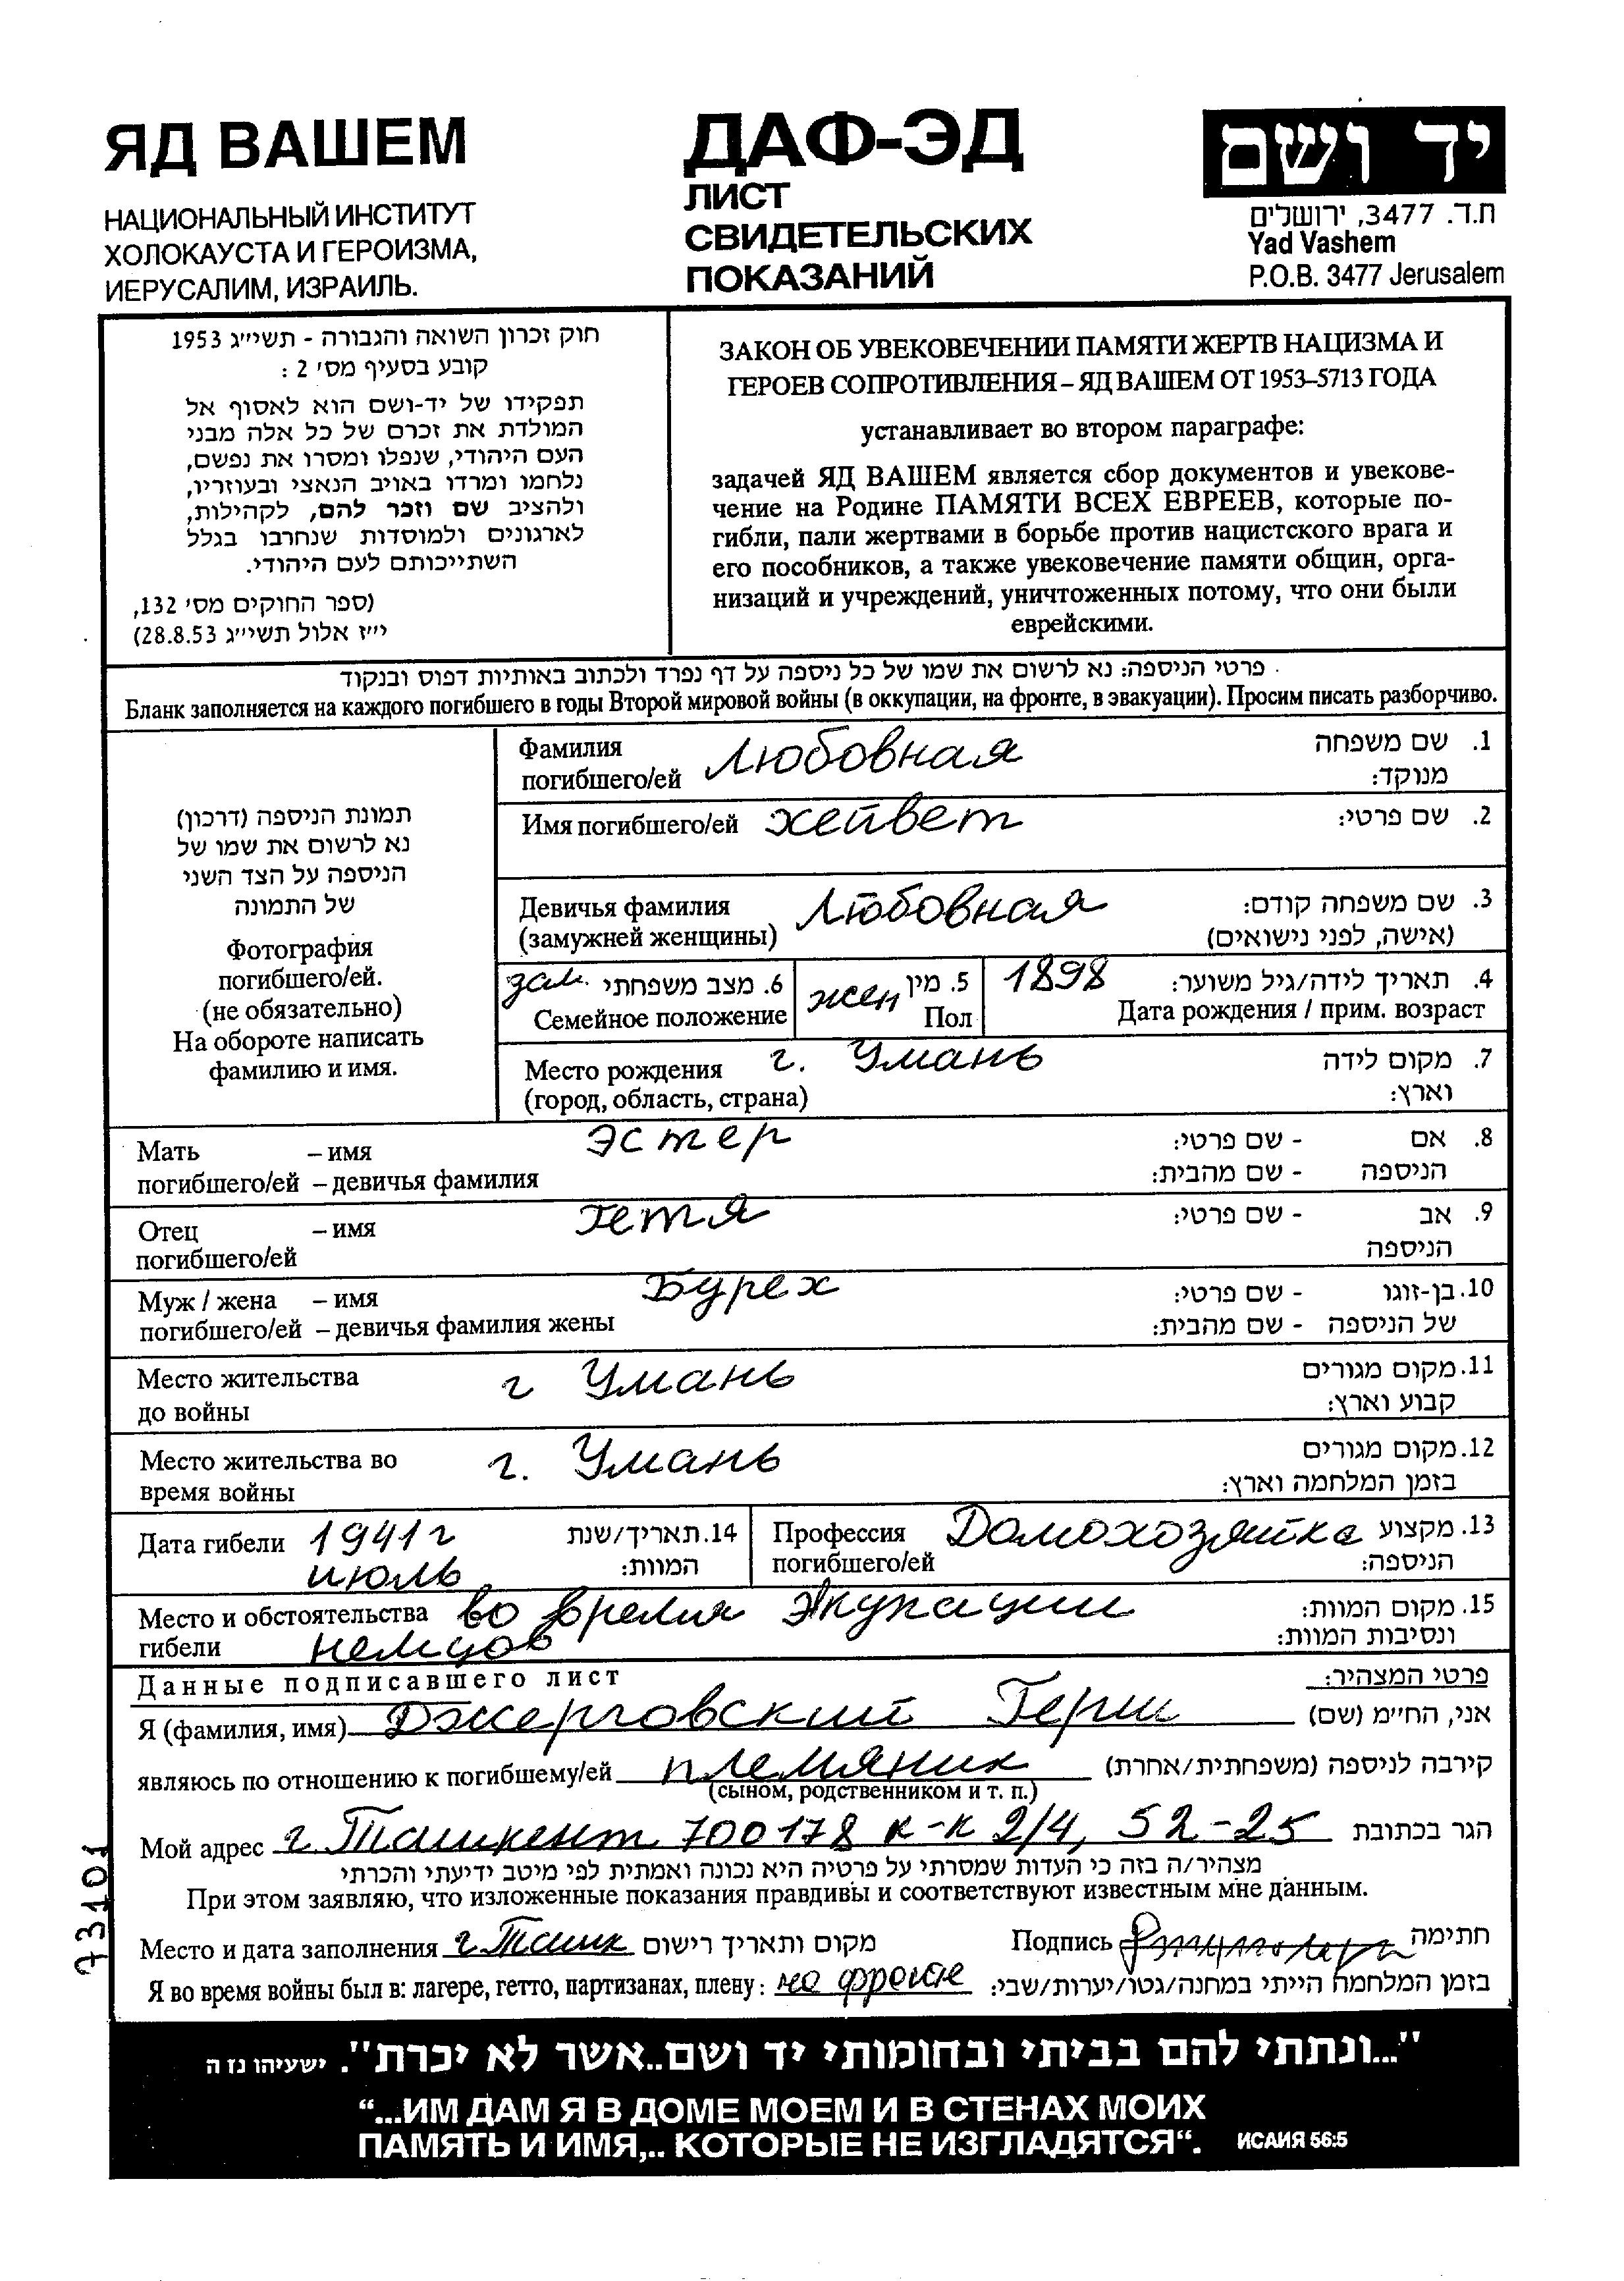 ЯД ВАШЕМ
НАЦИОНАЛЬНЫЙ ИНСТИТУТ
ХОЛОКАУСТА И ГЕРОИЗМА,
ИЕРУСАЛИМ, ИЗРАИЛЬ.
ДАФ-ЭД
ЛИСТ
СВИДЕТЕЛЬСКИХ
ПОКАЗАНИЙ
יד ושם
ת.ד. 3477, ירושלים
Yad Vashem
P.O.B. 3477 Jerusalem
חוק זכרון השואה והגבורה - תשי״ג 1953
קובע בסעיף מס׳ 2 :
תפקידו של יד-ושם הוא לאסוף אל
המולדת את זכרם של כל אלה מבני
העם היהודי, שנפלו ומסרו את נפשם,
נלחמו ומרדו באויב הנאצי ובעוזריו,
ולהציב שם וזכר להם, לקהילות,
לארגונים ולמוסדות שנחרבו בגלל
השתייכותם לעם היהודי.
(ספר החוקים מס׳ 132,
י״ז אלול תשי״ג 28.8.53)
ЗАКОН ОБ УВЕКОВЕЧЕНИИ ПАМЯТИ ЖЕРТВ НАЦИЗМА И
ГЕРОЕВ СОПРОТИВЛЕНИЯ – ЯД ВАШЕМ ОТ 1953–5713 ГОДА
устанавливает во втором параграфе:
задачей ЯД ВАШЕМ является сбор документов и увекове-
чение на Родине ПАМЯТИ ВСЕХ ЕВРЕЕВ, которые по-
гибли, пали жертвами в борьбе против нацистского врага и
его пособников, а также увековечение памяти общин, орга-
низаций и учреждений, уничтоженных потому, что они были
еврейскими.
פרטי הניספה: נא לרשום את שמו של כל ניספה על דף נפרד ולכתוב באותיות דפוס ובנקוד
Бланк заполняется на каждого погибшего в годы Второй мировой войны (в оккупации, на фронте, в эвакуации). Просим писать разборчиво.
תמונת הניספה (דרכון)
נא לרשום את שמו של
הניספה על הצד השני
של התמונה
Фотография
погибшего/ей.
(не обязательно)
На обороте написать
фамилию и имя.
Фамилия Любовная 1. שם משפחה
погибшего/ей מנוקד:
Имя погибшего/ей хейвет 2. שם פרטי:
Девичья фамилия Любовная 3. שם משפחה קודם:
(замужней женщины) (אישה, לפני נישואים)
зам. 6. מצב משפחתי жен 5. מין 1898 4. תאריך לידה/גיל משוער:
Семейное положение Пол Дата рождения / прим. возраст
Место рождения г. Умань 7. מקום לידה
(город, область, страна) וארץ:
Мать – имя Эстер 8. אם - שם פרטי:
погибшего/ей – девичья фамилия הניספה - שם מהבית:
Отец – имя Гетя 9. אב - שם פרטי:
погибшего/ей הניספה
Муж / жена – имя Бурех 10. בן-זוגו - שם פרטי:
погибшего/ей – девичья фамилия жены של הניספה - שם מהבית:
Место жительства г Умань 11. מקום מגורים
до войны קבוע וארץ:
Место жительства во г. Умань 12. מקום מגורים
время войны בזמן המלחמה וארץ:
Дата гибели 1941 г 14. תאריך/שנת Профессия Домохозяйка 13. מקצוע
июль המוות: погибшего/ей הניספה:
Место и обстоятельства во время экупации 15. מקום המוות:
гибели немцов ונסיבות המוות:
Данные подписавшего лист פרטי המצהיר:
Я (фамилия, имя) Джерговский Герш אני, החי״מ (שם)
являюсь по отношению к погибшему/ей племяник קירבה לניספה (משפחתית/אחרת)
(сыном, родственником и т. п.)
Мой адрес г. Ташкент 700178 к-к 2/4, 52-25 הגר בכתובת
מצהיר/ה בזה כי העדות שמסרתי על פרטיה היא נכונה ואמתית לפי מיטב ידיעתי והכרתי
При этом заявляю, что изложенные показания правдивы и соответствуют известным мне данным.
Место и дата заполнения г. Ташк מקום ותאריך רישום Подпись חתימה
Я во время войны был в: лагере, гетто, партизанах, плену: на фронте בזמן המלחמה הייתי במחנה/גטו/יערות/שבי:
73101
"...ונתתי להם בביתי ובחומותי יד ושם..אשר לא יכרת". ישעיהו נז ה
“...ИМ ДАМ Я В ДОМЕ МОЕМ И В СТЕНАХ МОИХ
ПАМЯТЬ И ИМЯ,.. КОТОРЫЕ НЕ ИЗГЛАДЯТСЯ“. ИСАИЯ 56:5